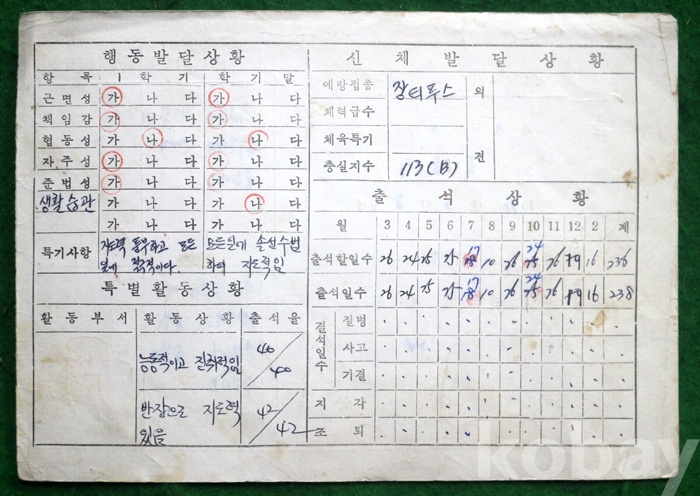 행동발달상황
항목 1학기 학기말
근면성 가 나 다 가 나 다
책임감 가 나 다 가 나 다
협동성 가 나 다 가 나 다
자주성 가 나 다 가 나 다
준법성 가 나 다 가 나 다
생활습관 가 나 다 가 나 다
가 나 다 가 나 다
특기사항 지도력 풍부하고 모든 일에 적극적이다.
모든일에 솔선수범하여 지도적임
특별활동상황
활동부서 활동상황 출석율
능동적이고 진취적임 40/40
반장으로 지도력 있음 42/42
신체발달상황
예방접종 장티푸스
체력급수
체육특기
충실지수 113(B)
외
견
출석상황
월 3 4 5 6 7 8 9 10 11 12 2 계
출석할일수 26 24 25 25 17 10 26 24 26 19 16 238
출석일수 26 24 25 25 17 10 26 24 26 19 16 238
결석일수 질병
사고
기결
지각
조퇴
kobay